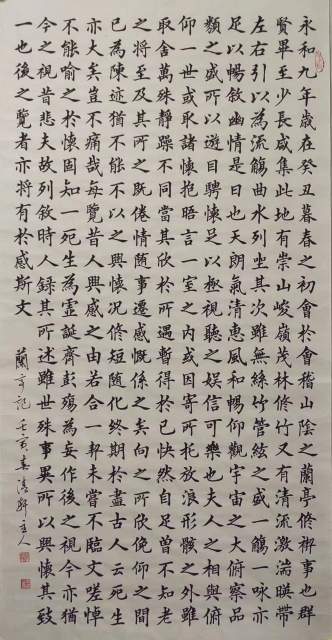 永和九年歲在癸丑暮春之初會於會稽山陰之蘭亭修禊事也群
賢畢至少長咸集此地有崇山峻嶺茂林修竹又有清流激湍映帶
左右引以為流觴曲水列坐其次雖無絲竹管絃之盛一觴一詠亦
足以暢敘幽情是日也天朗氣清惠風和暢仰觀宇宙之大俯察品
類之盛所以遊目騁懷足以極視聽之娛信可樂也夫人之相與俯
仰一世或取諸懷抱晤言一室之內或因寄所托放浪形骸之外雖
取舍萬殊靜躁不同當其欣於所遇暫得於己快然自足曾不知老
之將至及其所之既倦情隨事遷感慨係之矣向之所欣俛仰之間
已為陳迹猶不能不以之興懷況修短隨化終期於盡古人云死生
亦大矣豈不痛哉每覽昔人興感之由若合一契未嘗不臨文嗟悼
不能喻之於懷固知一死生為虛誕齊彭殤為妄作後之視今亦猶
今之視昔悲夫故列敘時人錄其所述雖世殊事異所以興懷其致
一也後之覽者亦將有於感斯文
蘭亭記 壬寅春 軒主人